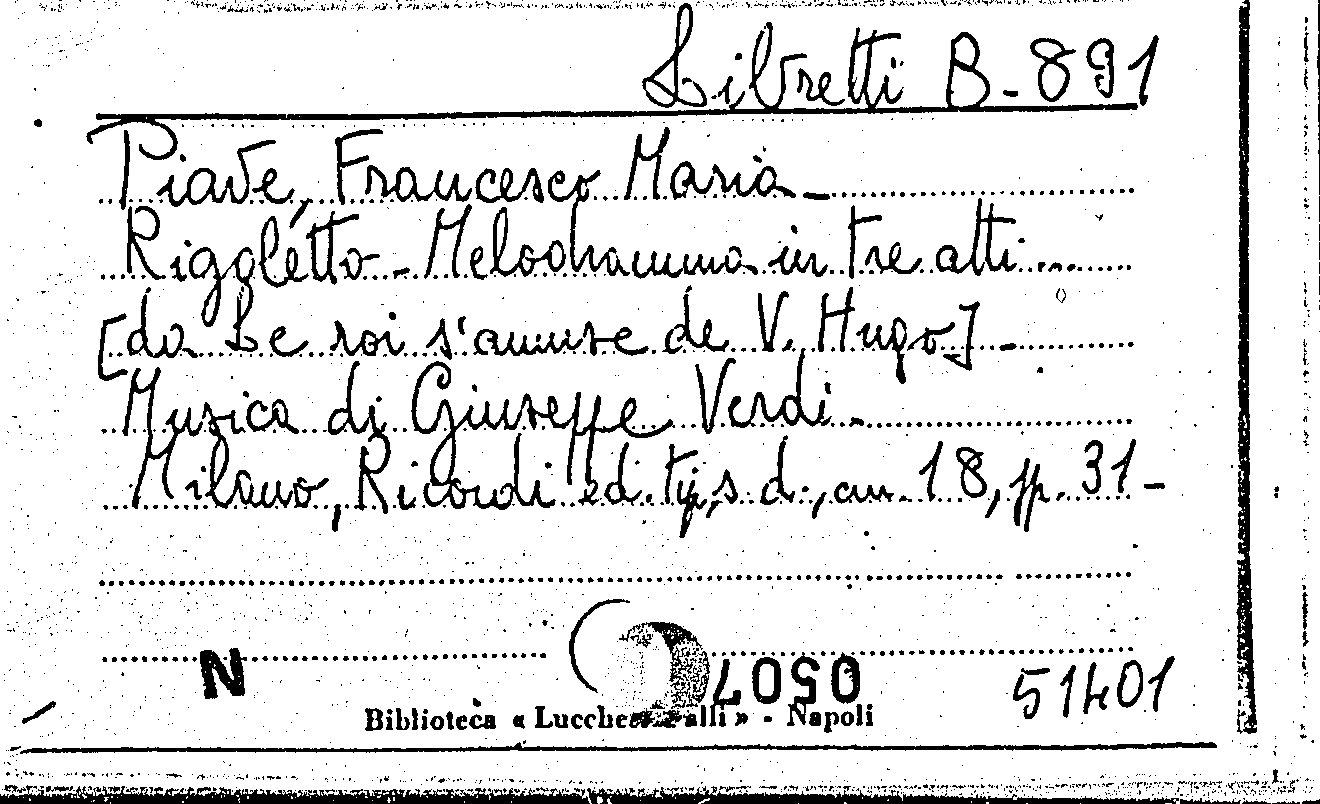 Libretti B-891
Piave, Francesco Maria -
Rigoletto - Melodramma in tre atti ...
[da Le roi s'amuse de V. Hugo] -
Musica di Giuseppe Verdi -
Milano, Ricordi ed. tip, s. d., cm. 18, pp. 31 -
N 0507 51401
Biblioteca « Lucchesi Palli » - Napoli